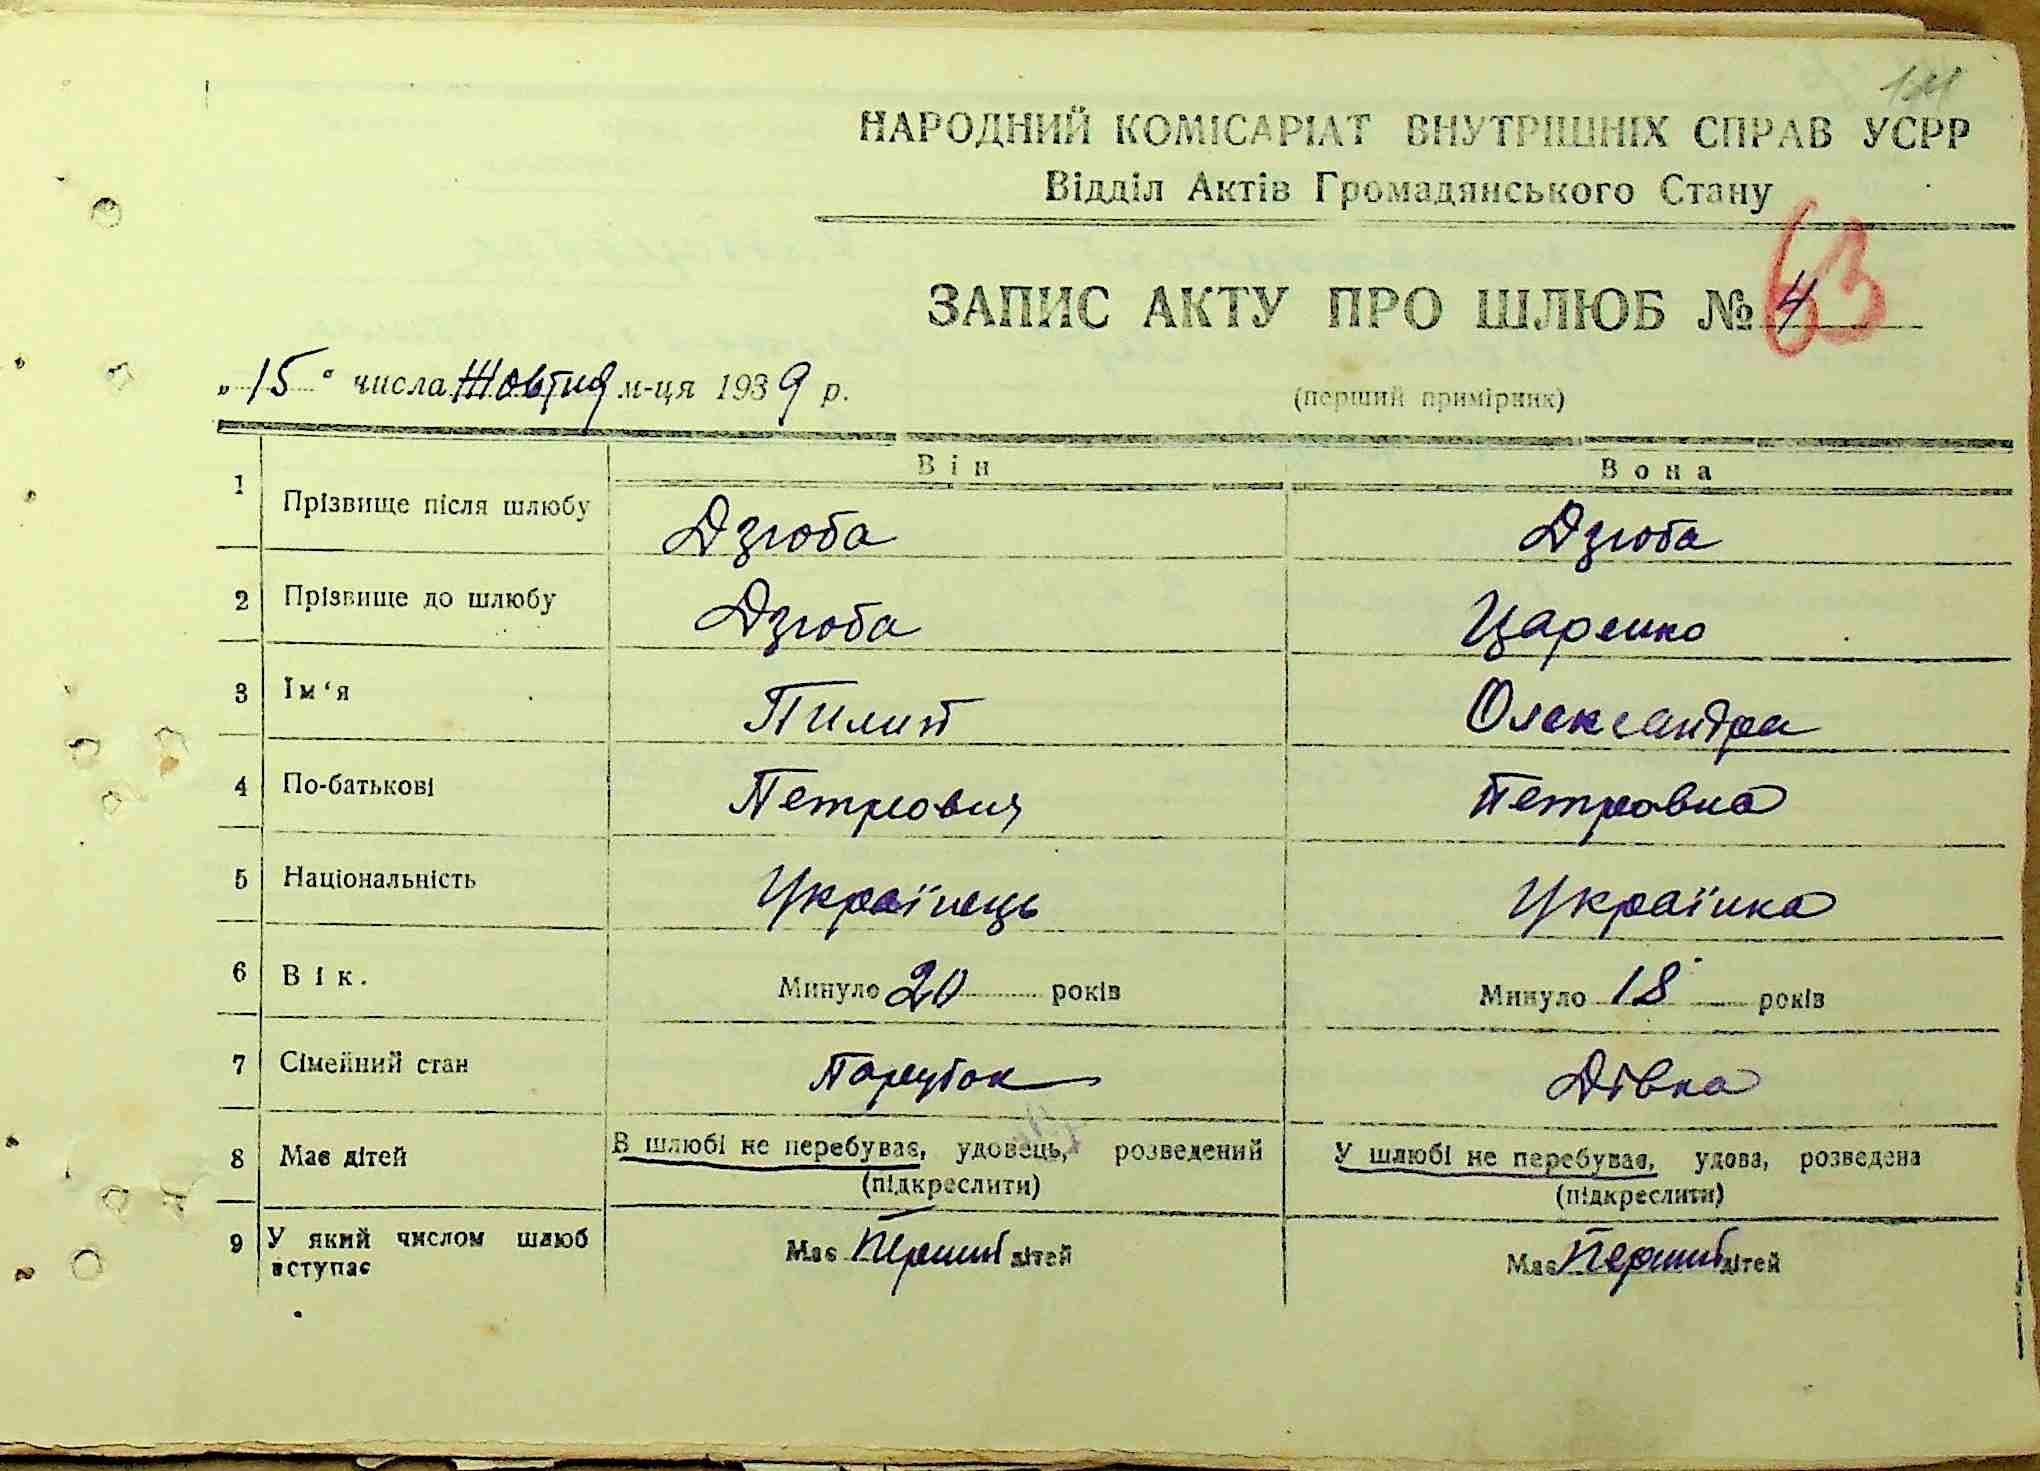 НАРОДНИЙ КОМІСАРІАТ ВНУТРІШНІХ СПРАВ УСРР
Відділ Актів Громадянського Стану
63
ЗАПИС АКТУ ПРО ШЛЮБ № 4
„ 15 " числа Жовтня м-ця 1939 р.
(перший примірник)
Він Вона
1 Прізвище після шлюбу Дзюба Дзюба
2 Прізвище до шлюбу Дзюба Царенко
3 Ім'я Пилип Олександра
4 По-батькові Петрович Петровна
5 Національність Українець Українка
6 Вік. Минуло 20 років Минуло 18 років
7 Сімейний стан Парубок Дівка
8 Має дітей В шлюбі не перебуває, удовець, розведений У шлюбі не перебуває, удова, розведена
(підкреслити) (підкреслити)
9 У який числом шлюб Має Перший дітей Має Перший дітей
вступає